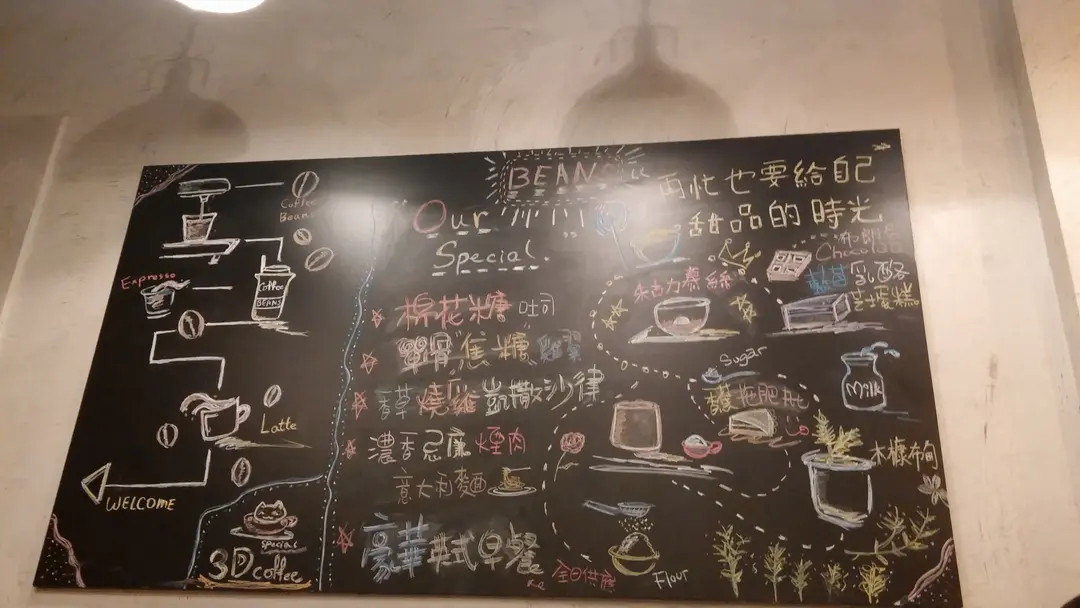 BEANS
再忙也要給自己
甜品的時光
Our
Special.
Coffee
Beans
Expresso
Coffee
BEANS
Latte
WELCOME
special
3D coffee
棉花糖吐司
焦糖
香草燒雞凱撒沙律
濃香忌廉煙肉
意大利麵
豪華英式早餐
全日供應
朱古力慕絲
Choco
藍莓乳酪
芝士蛋糕
Sugar
Milk
木糠布甸
Flour